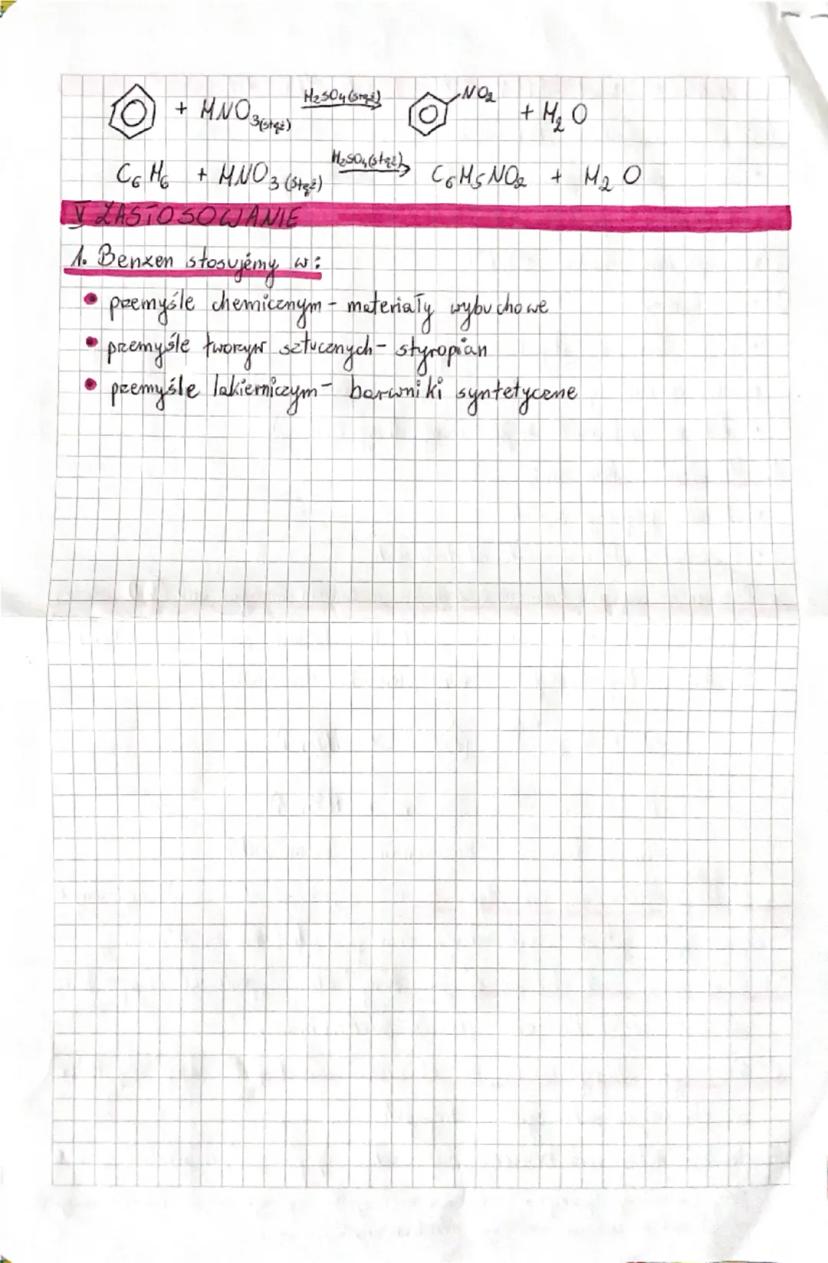 + HNO3(stęż) H2SO4(stęż) NO2 + H2O
C6H6 + HNO3(stęż) H2SO4(stęż) C6H5NO2 + H2O
V ZASTOSOWANIE
1. Benzen stosujemy w:
• przemyśle chemicznym - materiały wybuchowe
• przemyśle tworzyw sztucznych - styropian
• przemyśle lakierniczym - barwniki syntetyczne